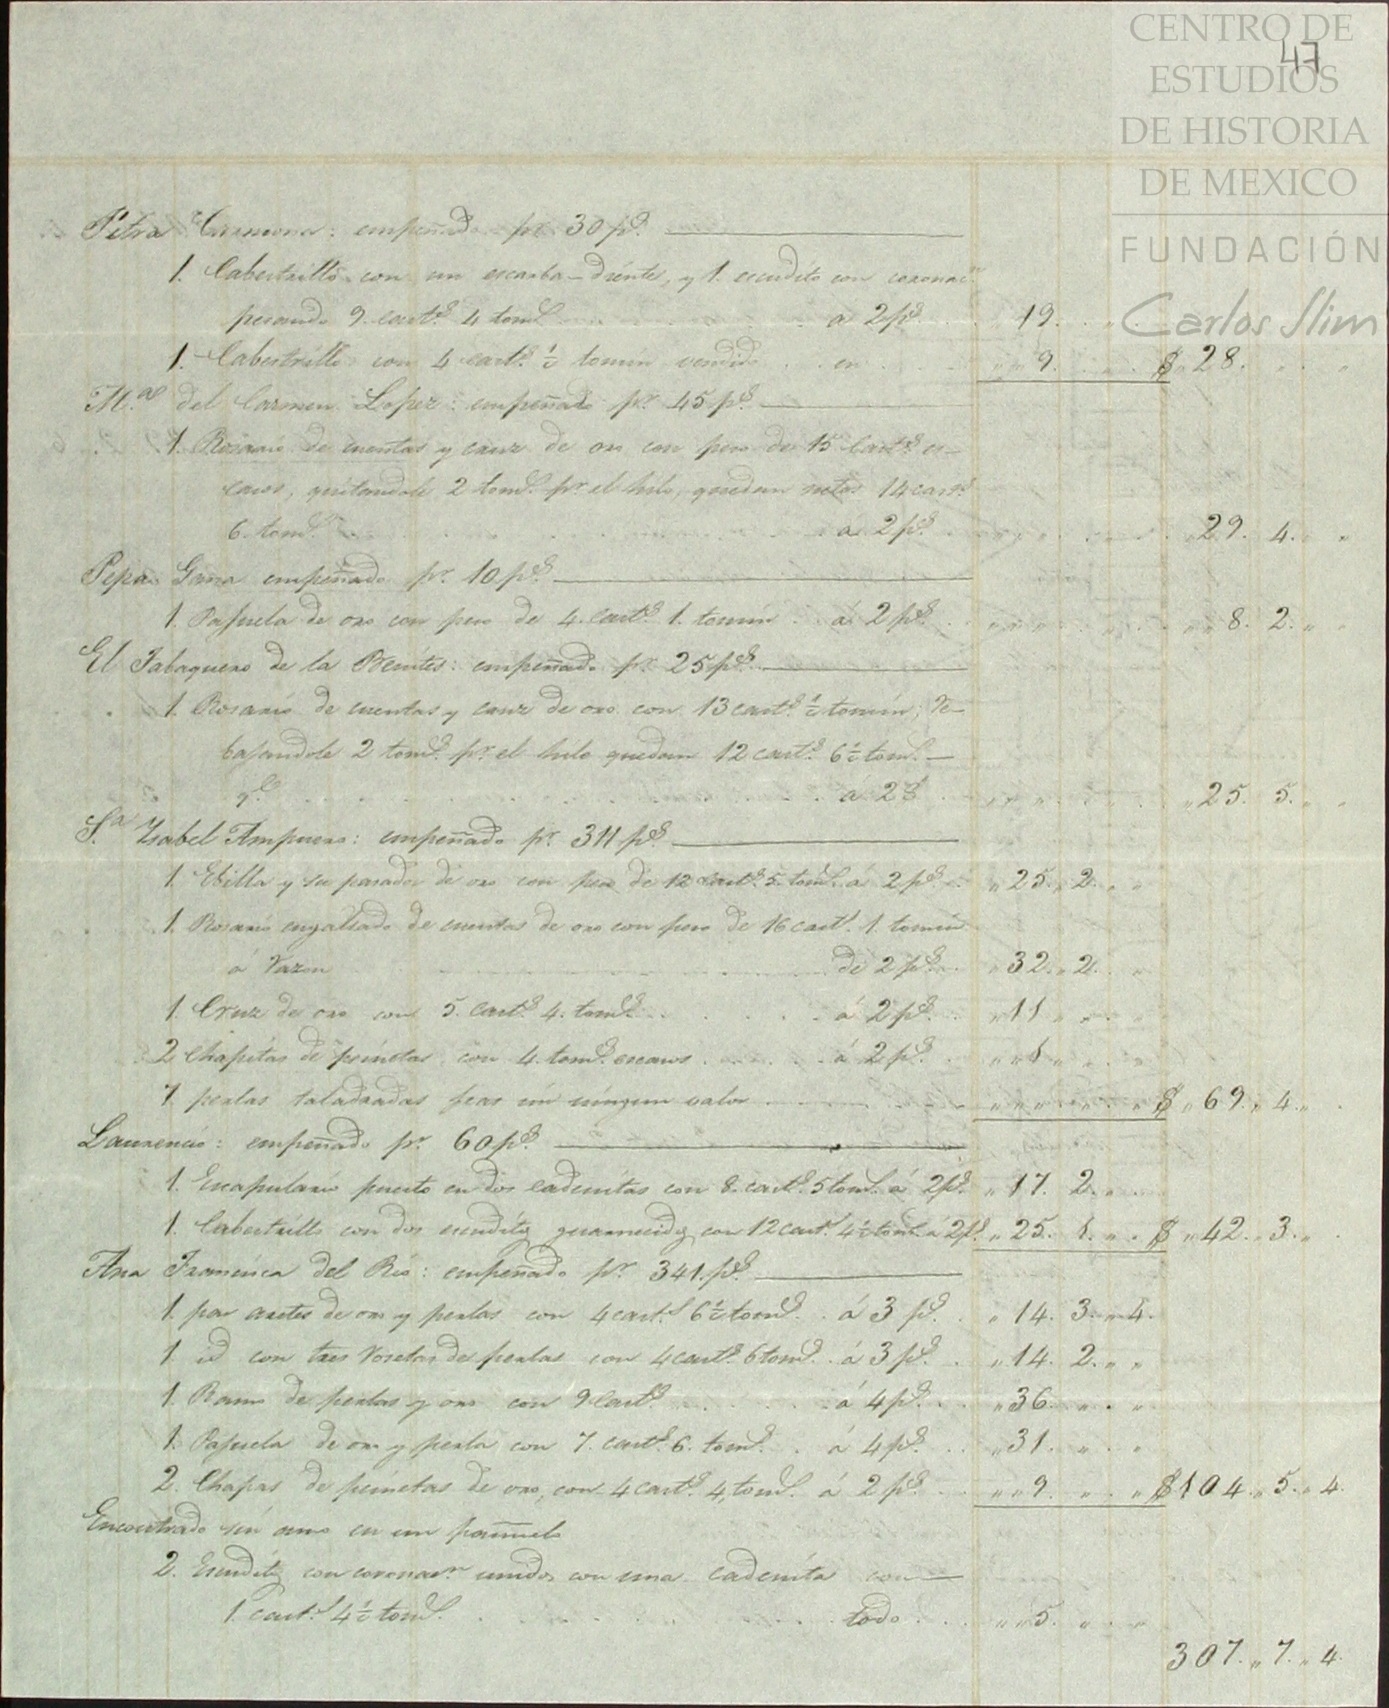 CENTRO DE
ESTUDIOS
DE HISTORIA
DE MEXICO
FUNDACIÓN
Carlos Slim
47
Petra Carmona: empeñado pr. 30 ps.
1. Cabestrillo con un escarba-diente, y 1. escudito con coronacn.
pesando 9. casts. 4 toms. a 2 ps. 19.
1. Cabestrillo con 4 casts. ½ tomin vendido en 9. $ 28.
Ma. del Carmen Lopez: empeñado pr. 45 ps.
1. Rosario de cuentas y cruz de oro con peso de 15 casts. es-
casos, quitandole 2 toms. pr. el hilo, quedan netos 14 casts.
6. toms. á 2 ps. 29. 4.
Pepa empeñado pr. 10 ps.
1. Pajuela de oro con peso de 4. casts. 1. tomin á 2 ps. 8. 2.
El Tabaquero de la Benites: empeñado pr. 25 ps.
1. Rosario de cuentas y cruz de oro con 13 casts. ½ tomin; re-
bajandole 2 toms. pr. el hilo quedan 12 casts. 6½ toms.
á 2 $ 25. 5.
Sa. Ysabel Ampuero: empeñado pr. 311 ps.
1. Ebilla y su pasador de oro con peso de 12 casts. 5. toms. á 2 ps. 25. 2.
1. Rosario engalsado de cuentas de oro con peso de 16 casts. 1. tomin
á razon de 2 ps. 32. 2.
1. Cruz de oro con 5. casts. 4. toms. á 2 ps. 11
2 Chapitas de peinetas con 4. toms. escasos á 2 ps. 1
7. perlas taladradas feas sin ningun valor $ 69. 4.
Laurencio: empeñado pr. 60 ps.
1. Escapulario puesto en dos cadenitas con 8. casts. 5 toms. á 2 ps. 17. 2.
1. Cabestrillo con dos escuditos guarnecidos con 12 casts. 4½ toms. á 2 ps. 25. 1. $ 42. 3.
Ana Francisca del Rio: empeñado pr. 341. ps.
1. par aretes de oro y perlas con 4 casts. 6½ toms. á 3 ps. 14. 3. 4.
1. id con tres rosetas de perlas con 4 casts. 6 toms. á 3 ps. 14. 2.
1. Ramo de perlas y oro con 9 casts. á 4 ps. 36.
1. Pajuela de oro y perla con 7. casts. 6. toms. á 4 ps. 31.
2. Chapas de peinetas de oro, con 4 casts. 4, toms. á 2 ps. 9. $ 104. 5. 4.
Encontrado sin amo en un pañuelo
2. Escuditos con coronacn. unidos con una cadenita con
1. cast. 4½ toms. todo 5.
307. 7. 4.